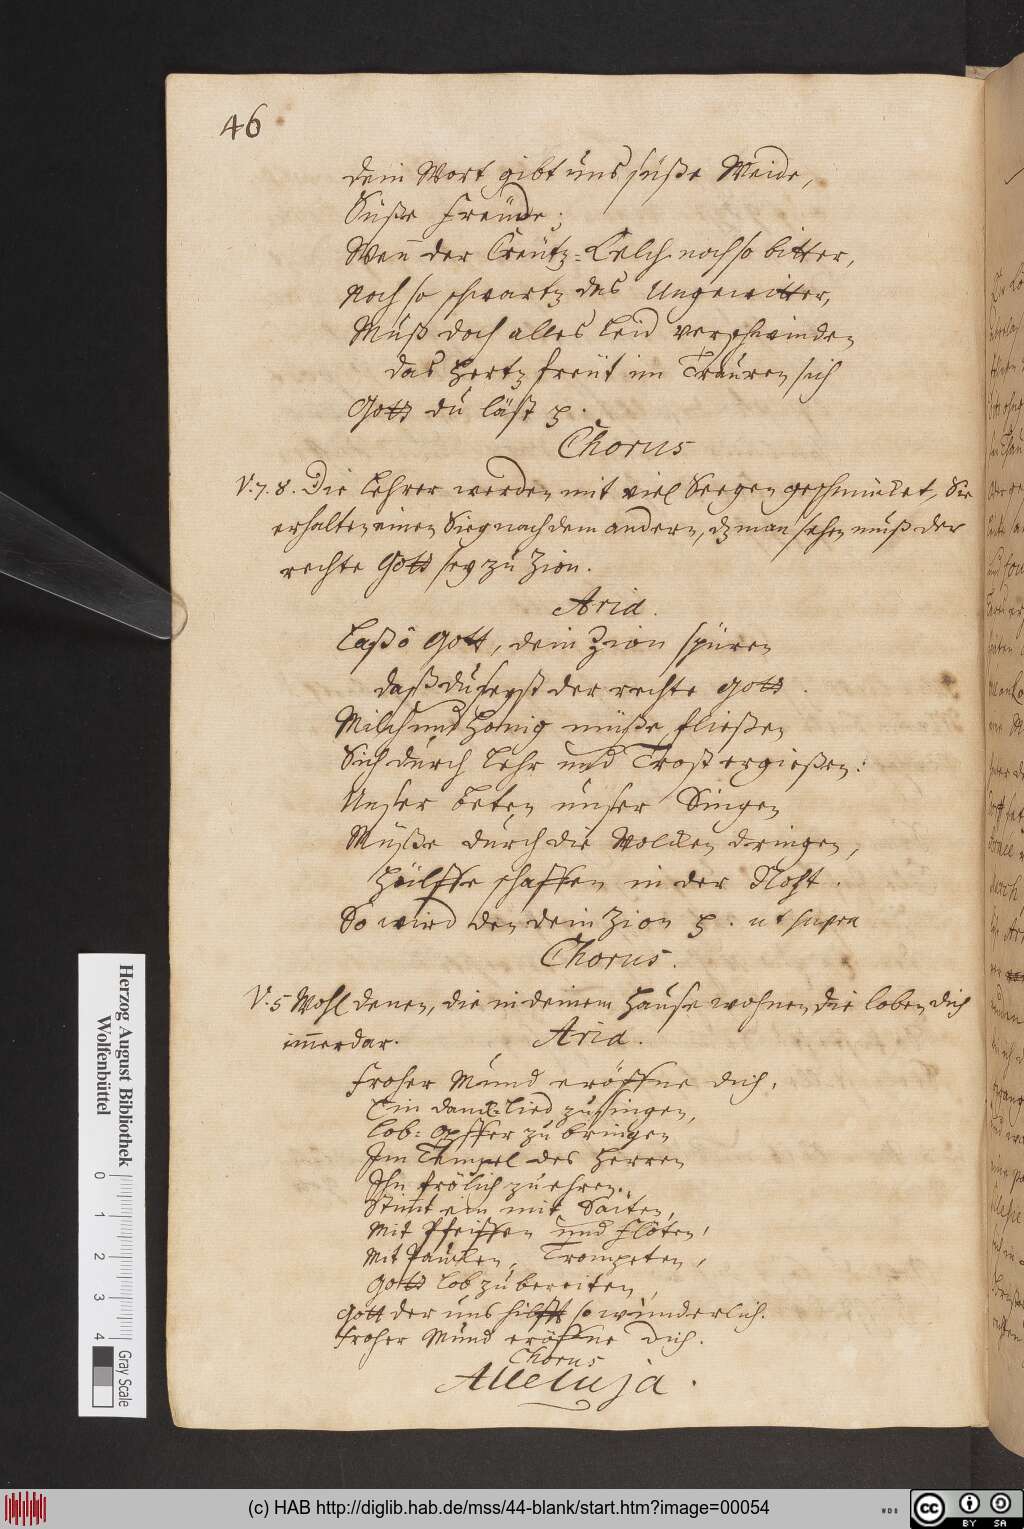 46
dein Wort gibt uns süße Weide,
Süße Freüde;
Weñ der Creütz-Kelch noch so bitter,
noch so schwartz das Ungewitter,
Muß doch alles Leid verschwinden
das Hertz freüt im Trauren sich
Gott du läst
Chorus
V. 7. 8. Die Lehrer werden mit viel Seegen geschmücket, Sie
erhalten einen Sieg nach dem andern, dz man sehen muß der
rechte Gott sey zu Zion.
Aria.
Laß ô Gott, dein Zion spüren
daß du seyst der rechte Gott.
Milch und Honig müße fließen
Sich durch Lehr und Trost ergießen:
Unser beten unser Singen
Müße durch die Wolcken dringen,
Hülffe schaffen in der Noht.
So wird den dein Zion ut supra
Chorus.
V. 5 Wohl denen, die in deinem Hause wohnen, die loben dich
im̃erdar.
Aria.
Froher Mund eröffne dich,
Ein danck-lied zu singen,
Lob-Opffer zu bringen
Im Tempel des Herren
Ihn frölich zu ehren.
Stimt ein mit Saiten,
Mit Pfeiffen und Flöten,
Mit Paucken, Trompeten,
Gott Lob zu bereiten,
Gott der uns hilfft so wunderlich.
Froher Mund eröffne dich.
Chorus
Alleluja.
Herzog August Bibliothek
Wolfenbüttel
0 1 2 3 4
Gray Scale
(c) HAB http://diglib.hab.de/mss/44-blank/start.htm?image=00054
cc BY SA